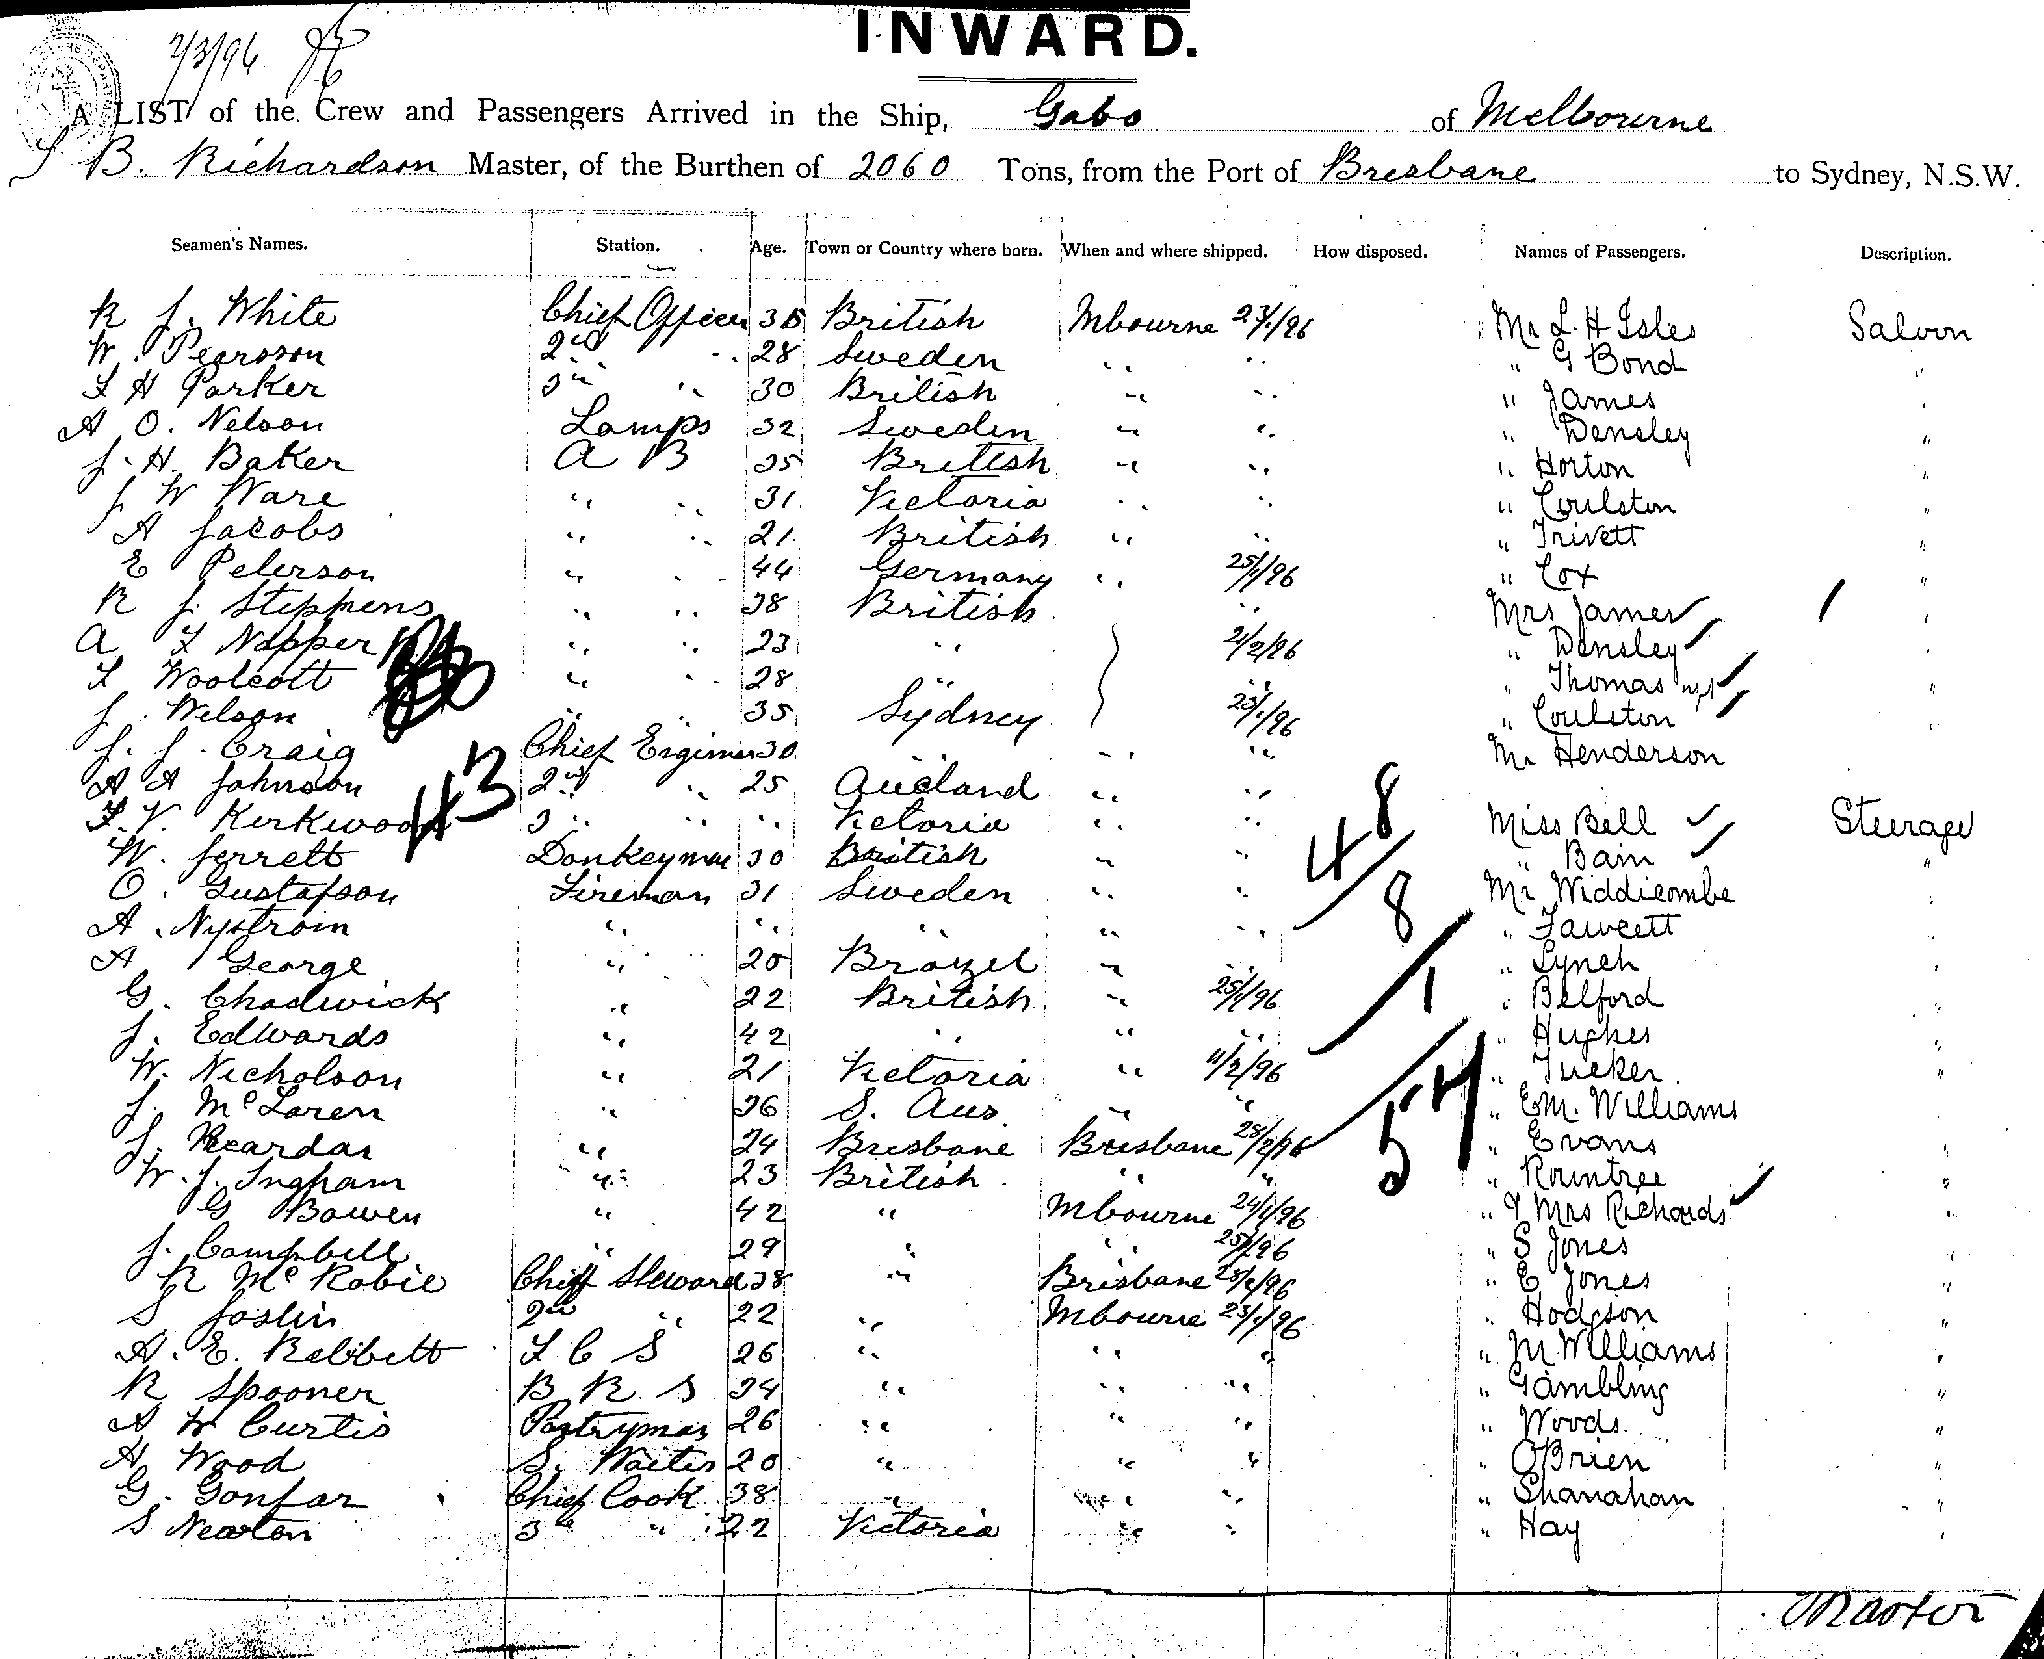 INWARD.
2/3/96
A LIST of the Crew and Passengers Arrived in the Ship, Gabo of Melbourne
B. Richardson Master, of the Burthen of 2060 Tons, from the Port of Brisbane to Sydney, N.S.W.
Seamen's Names. Station. Age. Town or Country where born. When and where shipped. How disposed. Names of Passengers. Description.
R J. White Chief Officer 35 British Mbourne 23/1/96 Mr L. H Isles Saloon
W. Pearsson 2nd " 28 Sweden " " " G Bond "
F H Parker 3rd " 30 British " " " James "
A O. Nelson Lamps 32 Sweden " " " Densley "
J. H. Baker A B 35 British " " " Horton "
J W Ware " " 31 Victoria " " " Coulston "
A Jacobs " " 21 British " " " Trivett "
E Peterson " " 44 Germany " 25/1/96 " Cox "
R J. Stephens " " 38 British " Mrs James
A F Napper " " 23 " 21/2/96 " Densley "
F Woolcott " " 28 " " " Thomas "
J. Wilson " " 35 Sydney 23/1/96 " Coulston "
J. J. Craig Chief Engineer 30 " " Mr Henderson
A A Johnson 2nd " 25 Aucland " "
43
48
F. V. Kirkwood 3 " " " Victoria " " Miss Bell Steerage
W. Jerrett Donkeyman 30 British " " " Bain "
O. Gustafson Fireman 31 Sweden " " Mr Widdicombe "
8
A. Nystrom " " " " " " Fawcett "
A George " 20 Brazel " " " Lynch "
1
G. Chadwick " 22 British " 25/1/96 " Belford "
J. Edwards " 42 " " " " Hughes "
W. Nicholson " 21 Victoria " 11/2/96 " Tucker "
J. McLaren " 36 S. Aus. " " " E M. Williams "
54
J. Reardan " 24 Brisbane Brisbane 28/2/96 " Evans "
W. J. Ingham " 23 British " " " Rountree "
G Bowen " 42 " Mbourne 24/1/96 " & Mrs Richards "
J. Campbell " 29 " " 25/1/96 " S Jones "
R McRobie Chief Steward 38 " Brisbane 28/2/96 " E Jones "
S Joslin 2nd " 22 " Mbourne 23/1/96 " Hodgson "
A. E. Rebbett F C S 26 " " " " M Williams "
R Spooner B R S 24 " " " " Gambling "
A W Curtis Pantryman 26 " " " " Woods "
A Wood S. Waiter 20 " " " " O'Brien "
G. Gonfar Chief Cook 38 " " " " Shanahan "
S Newton 3rd " 22 Victoria " " " Hay "
Master